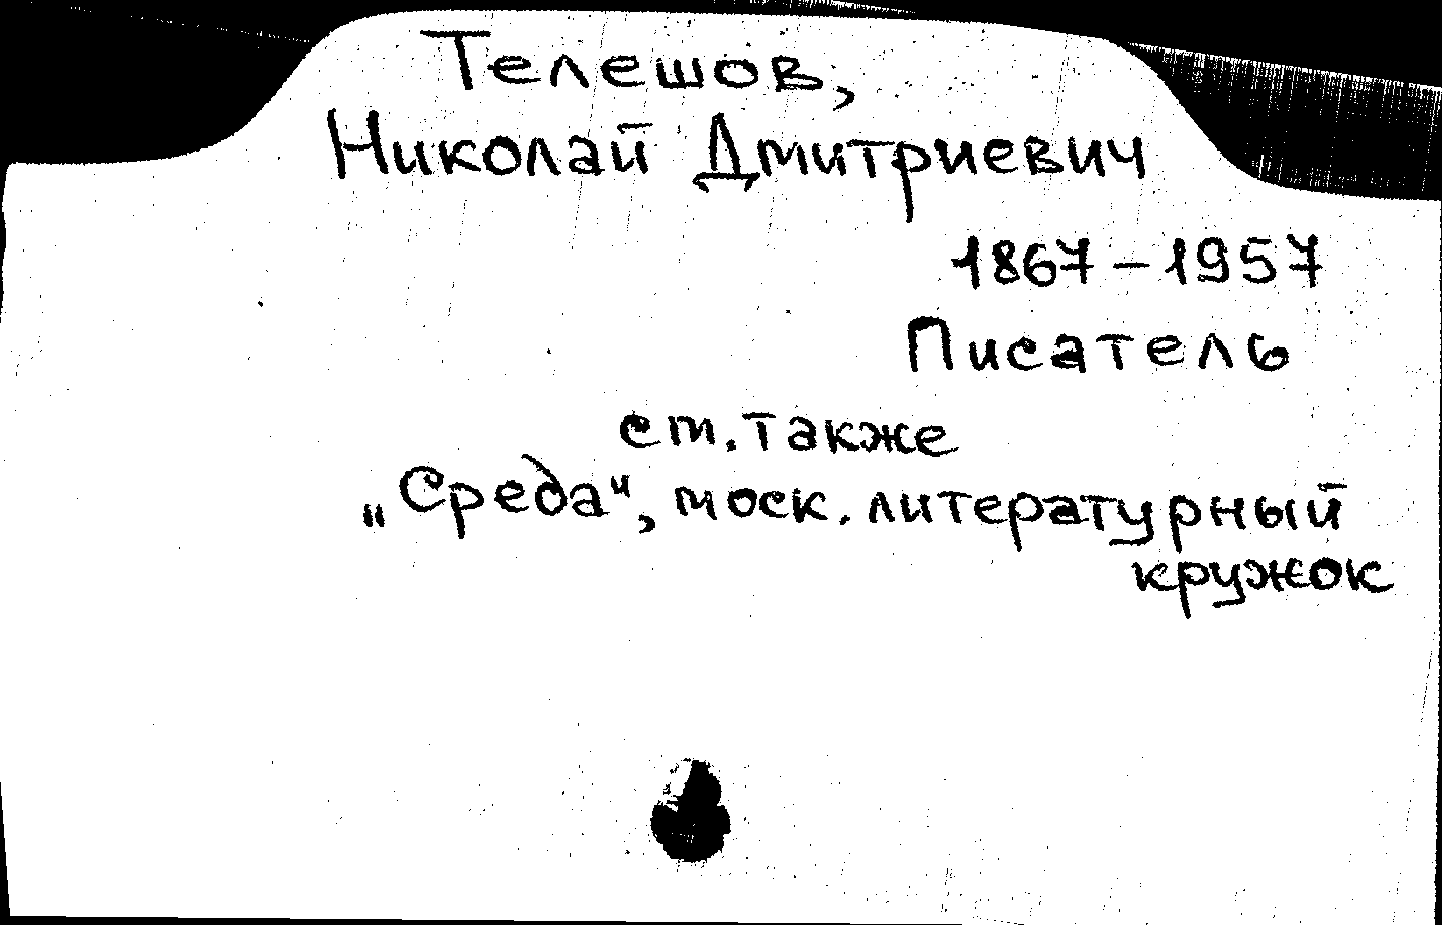 Телешов,
Николай Дмитриевич
1867-1957
Писатель
см. также
„Среда“, моск. литературный
кружок